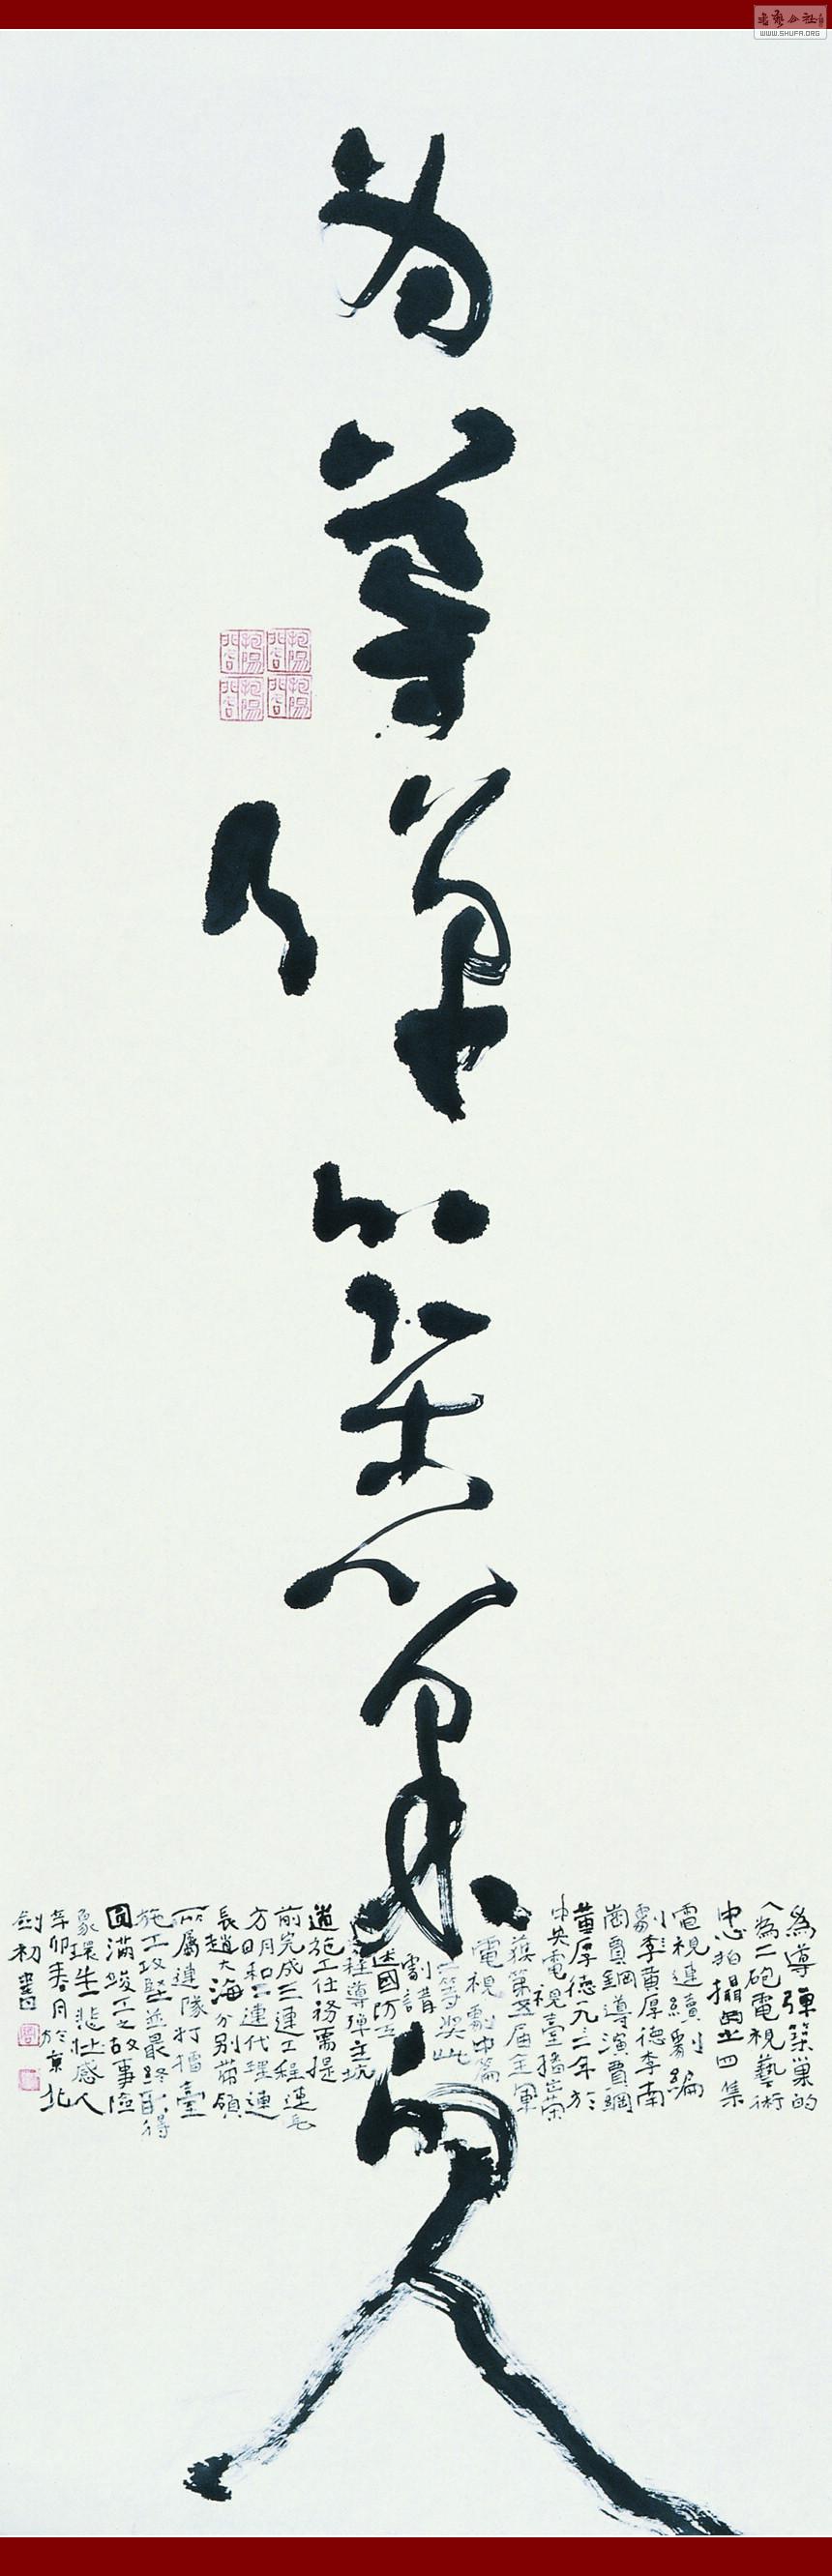 為導彈築巢的人
為導彈築巢的
人為二砲電視藝術
中心拍攝 四集
電視連續劇編
劇李黃厚德李南
崗賈鋼導演賈鋼
黃厚德九三年於
中央電視臺播出榮
獲第五屆全軍
電視劇中篇
二等奖此
劇講
述國防工
程導彈主坑
道施工任務需提
前完成三連工程連長
方明和二連代理連
長趙大海分别带領
所屬連隊打擂臺
施工攻堅並最終取得
圓滿竣工之故事險
象環生悲壯感人
辛卯春月於京北
劍初書
WWW.SHUFA.ORG